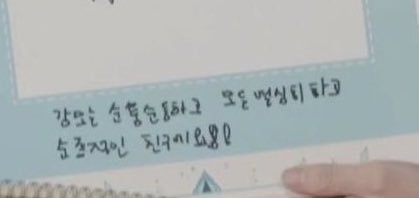 강모는 순둥순둥하고 모든 열심히 하고
순종적인 친구이요용!